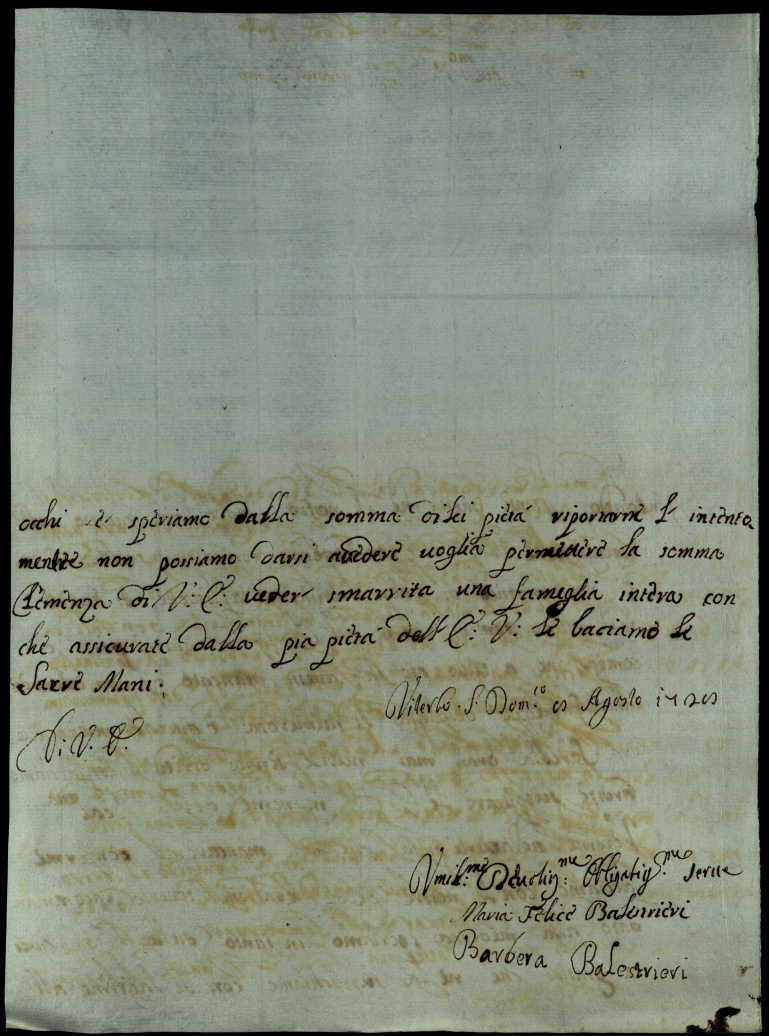 occhi e speriamo dalla somma di lei pietà riportarne l' intento
mentre non possiamo darsi a uedere uoglia permettere la somma
Clemenza di V: E: ueder smarrita una fameglia intera con
che assicurate dalla pia pietà dell' E: V: le baciamo le
Sacre Mani:
Viterbo S. Dom.co Agosto
Di V. E.
Vmil.me Deuotiss.me Obligatiss.me Serue
Maria Felice Balestrieri
Barbera Balestrieri